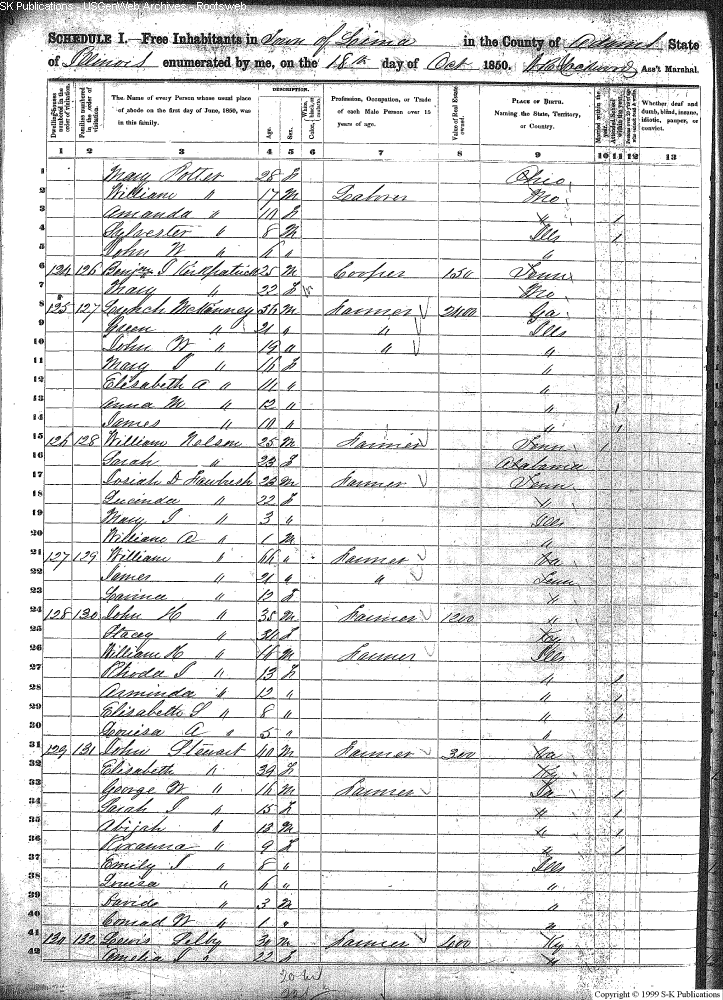 SK Publications - USGenWeb Archives - Rootsweb
SCHEDULE I.—Free Inhabitants in Town of Lima in the County of Adams State
of Illinois enumerated by me, on the 18th day of Oct 1850. Ass't Marshal.
DESCRIPTION.
Dwelling-houses numbered in the order of visitation.
Families numbered in the order of visitation.
The Name of every Person whose usual place of abode on the first day of June, 1850, was in this family.
Age.
Sex.
Color, White, black, or mulatto.
Profession, Occupation, or Trade of each Male Person over 15 years of age.
Value of Real Estate owned.
PLACE OF BIRTH. Naming the State, Territory, or Country.
Married within the year.
Attended School within the year.
Persons over 20 y'rs of age who cannot read & write.
Whether deaf and dumb, blind, insane, idiotic, pauper, or convict.
1 2 3 4 5 6 7 8 9 10 11 12 13
1 Mary Potter 28 F Ohio
2 William " 17 M Laborer Mo
3 Amanda " 10 F " 1
4 Sylvester " 8 M Ills 1
5 John W " 6 " "
6 124 126 Kirkpatrick 25 M Cooper 150 Tenn
7 Mary " 22 F Mo
8 125 127 McKenney 56 M Farmer 2400 Ga
9 Green " 21 " " Ills
10 John W " 19 " " "
11 Mary " 16 F "
12 Elisabeth A " 14 " "
13 Anna M " 12 " " 1
14 James " 10 " " 1
15 126 128 William Nelson 25 M Farmer Tenn 1
16 Sarah " 23 F Alabama
17 Josiah D 23 M Farmer Tenn
18 Lucinda " 22 F "
19 Mary J " 3 " Ills
20 William A " 1 M "
21 127 129 William " 64 " Farmer Va
22 James " 21 " " Tenn
23 " 12 F "
24 128 130 John H " 35 M Farmer 1200 "
25 Stacey " F
26 William H " 16 M Farmer Ills
27 Rhoda J " 13 F " 1
28 Arminda " 12 " " 1
29 Elisabeth S " 8 " " 1
30 Louisa A " 5 " "
31 129 131 John Stewart 40 M Farmer 300 Va
32 Elisabeth " 39 F Ky
33 George W " 16 M Farmer Ia 1
34 Sarah J " 15 F " 1
35 Abijah " 13 M " 1
36 Roxanna " 9 F " 1
37 Emily J " 8 " Ills
38 Louisa " 6 " "
39 Davids " 3 M "
40 Conrad W " 1 " "
41 130 132 Lewis Selby 30 M Farmer 400 Ky
42 Amelia J " 22 F "
Copyright © 1999 S-K Publications